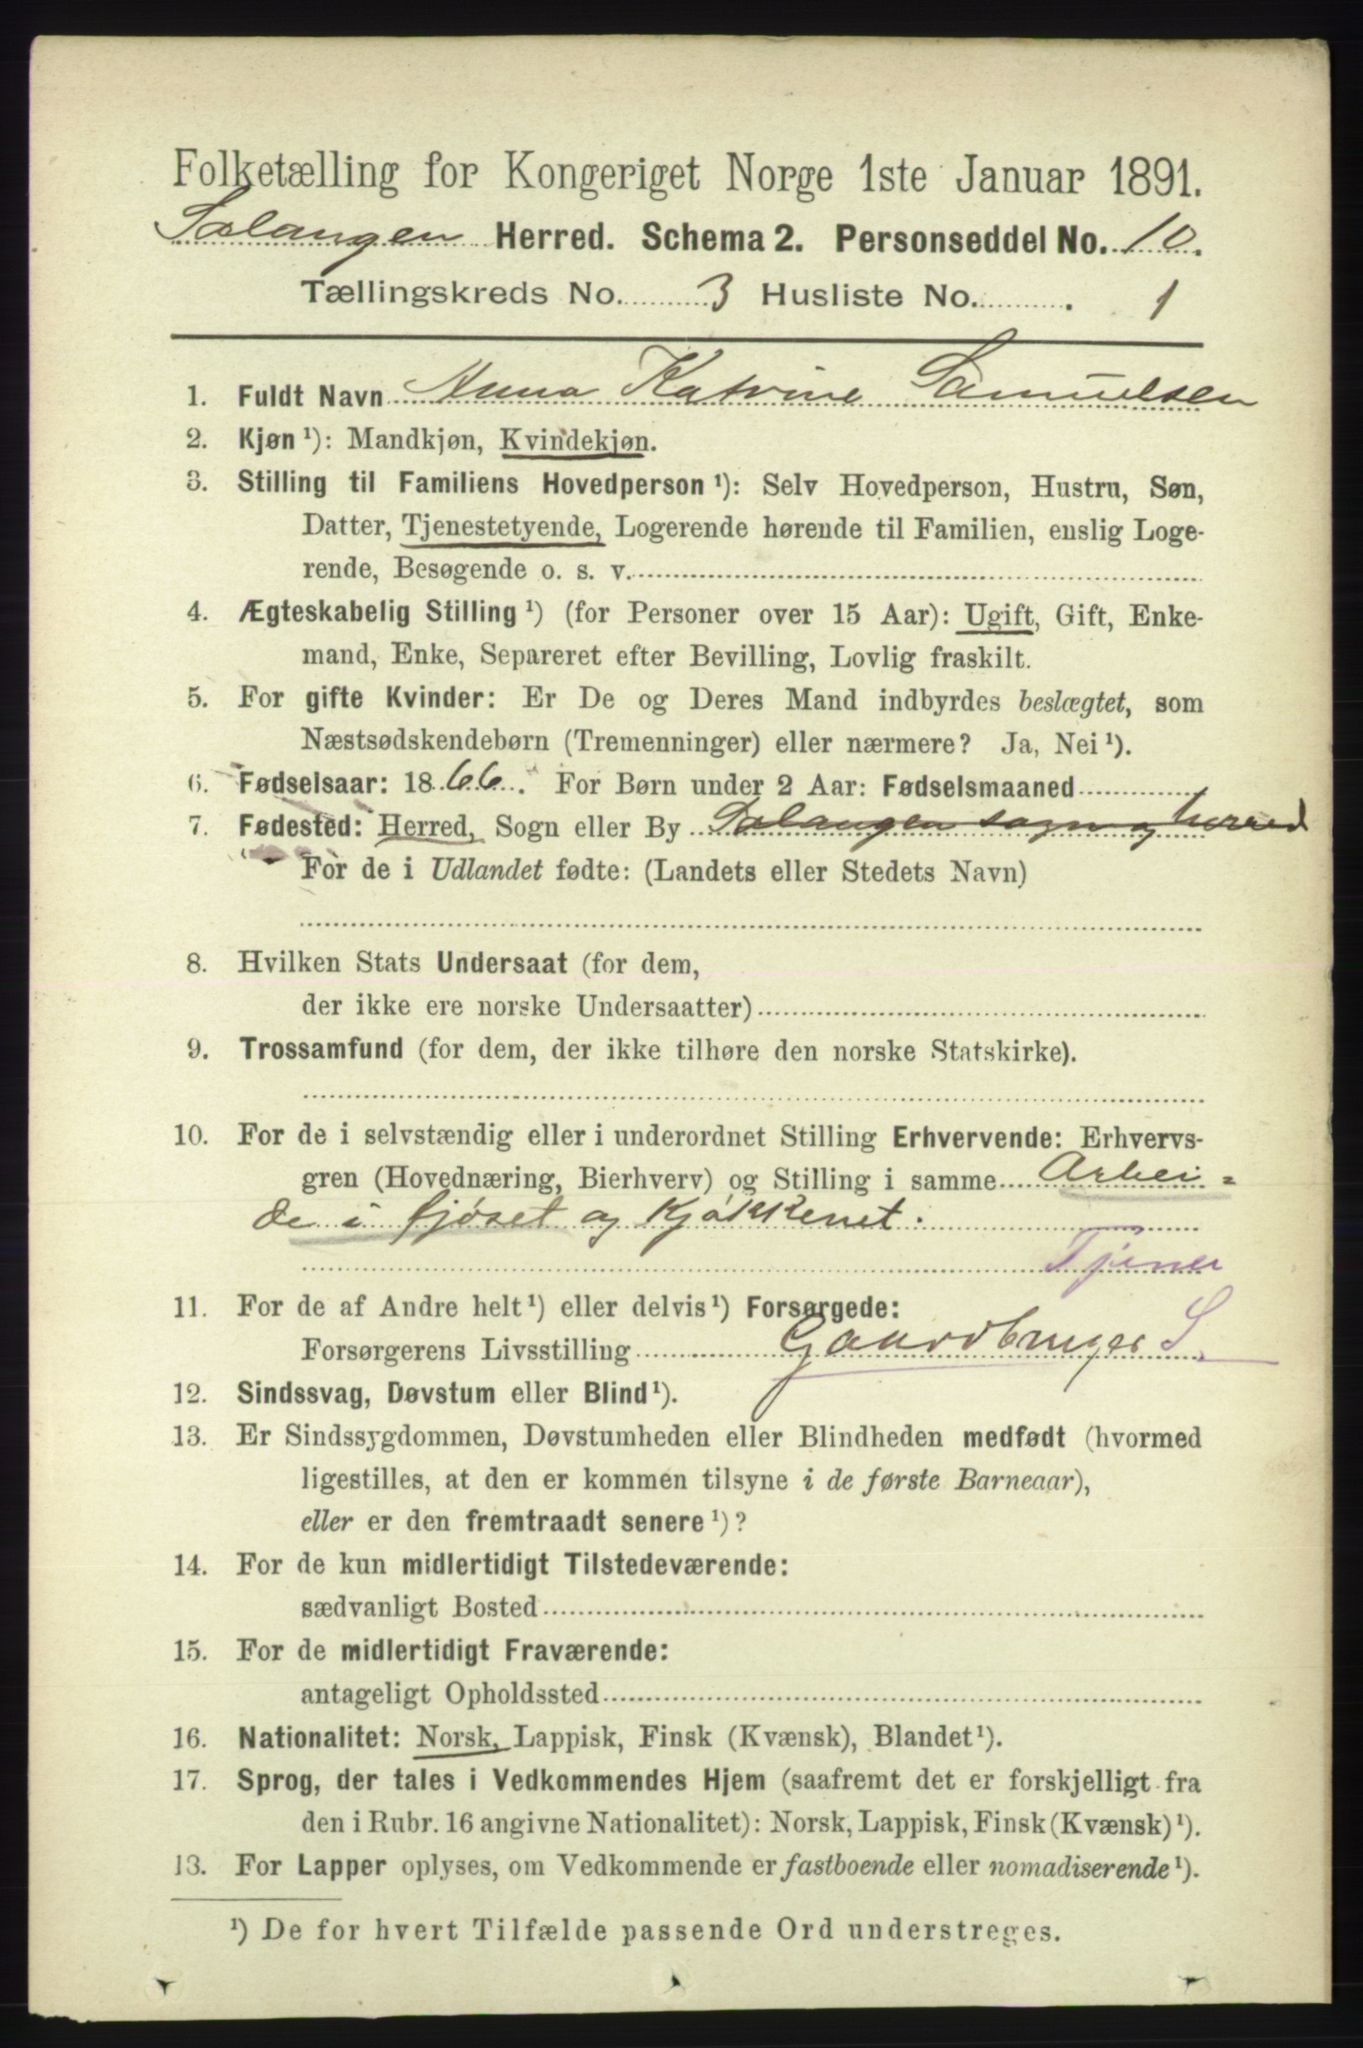 Folketælling for Kongeriget Norge 1ste Januar 1891.
Salangen Herred. Schema 2. Personseddel No. 10.
Tællingskreds No. 3 Husliste No. 1
1. Fuldt Navn Anna Katrine Samuelsen
2. Kjøn ¹): Mandkjøn, Kvindekjøn.
3. Stilling til Familiens Hovedperson ¹): Selv Hovedperson, Hustru, Søn,
Datter, Tjenestetyende, Logerende hørende til Familien, enslig Loge-
rende, Besøgende o. s. v.
4. Ægteskabelig Stilling ¹) (for Personer over 15 Aar): Ugift, Gift, Enke-
mand, Enke, Separeret efter Bevilling, Lovlig fraskilt.
5. For gifte Kvinder: Er De og Deres Mand indbyrdes beslægtet, som
Næstsødskendebørn (Tremenninger) eller nærmere? Ja, Nei ¹).
6. Fødselsaar: 1866. For Børn under 2 Aar: Fødselsmaaned
7. Fødested: Herred, Sogn eller By Salangen sogn og herred
For de i Udlandet fødte: (Landets eller Stedets Navn)
8. Hvilken Stats Undersaat (for dem,
der ikke ere norske Undersaatter)
9. Trossamfund (for dem, der ikke tilhøre den norske Statskirke).
10. For de i selvstændig eller i underordnet Stilling Erhvervende: Erhvervs-
gren (Hovednæring, Bierhverv) og Stilling i samme Arbei=
de i fjøset og Kjøkkenet.
Tjener
11. For de af Andre helt ¹) eller delvis ¹) Forsørgede:
Forsørgerens Livsstilling Gaardbruger S
12. Sindssvag, Døvstum eller Blind ¹).
13. Er Sindssygdommen, Døvstumheden eller Blindheden medfødt (hvormed
ligestilles, at den er kommen tilsyne i de første Barneaar),
eller er den fremtraadt senere ¹)?
14. For de kun midlertidigt Tilstedeværende:
sædvanligt Bosted
15. For de midlertidigt Fraværende:
antageligt Opholdssted
16. Nationalitet: Norsk, Lappisk, Finsk (Kvænsk), Blandet ¹).
17. Sprog, der tales i Vedkommendes Hjem (saafremt det er forskjelligt fra
den i Rubr. 16 angivne Nationalitet): Norsk, Lappisk, Finsk (Kvænsk) ¹).
13. For Lapper oplyses, om Vedkommende er fastboende eller nomadiserende ¹).
¹) De for hvert Tilfælde passende Ord understreges.